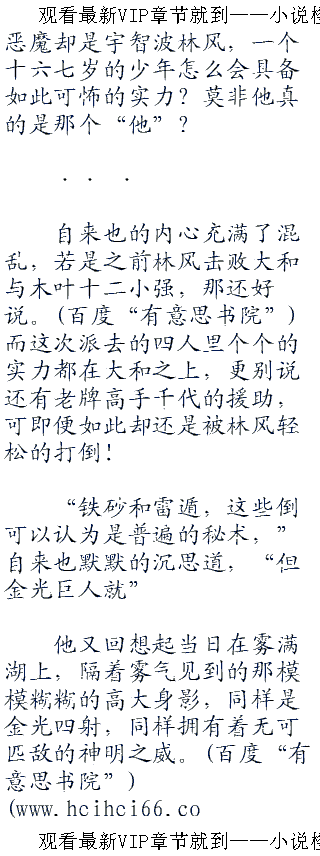 观看最新VIP章节就到——小说
恶魔却是宇智波林风，一个
十六七岁的少年怎么会具备
如此可怖的实力？莫非他真
的是那个“他”？
. . .
自来也的内心充满了混
乱，若是之前林风击败大和
与木叶十二小强，那还好
说。(百度“有意思书院”)
而这次派去的四人里个个的
实力都在大和之上，更别说
还有老牌高手千代的援助，
可即便如此却还是被林风轻
松的打倒！
“铁砂和雷遁，这些倒
可以认为是普遍的秘术，”
自来也默默的沉思道，“但
金光巨人就”
他又回想起当日在雾满
湖上，隔着雾气见到的那模
模糊糊的高大身影，同样是
金光四射，同样拥有着无可
匹敌的神明之威。(百度“有
意思书院”)
(www.hcihci66.co
观看最新VIP章节就到——小说